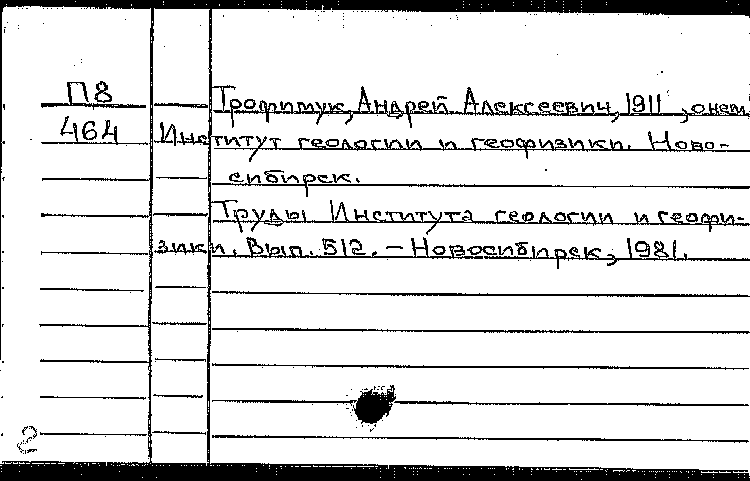 П8
Трофимук, Андрей Алексеевич, 1911, о нем
464
Институт геологии и геофизики. Ново-
сибирск.
Труды Института геологии и геофи-
зики. Вып. 512. – Новосибирск, 1981.
2